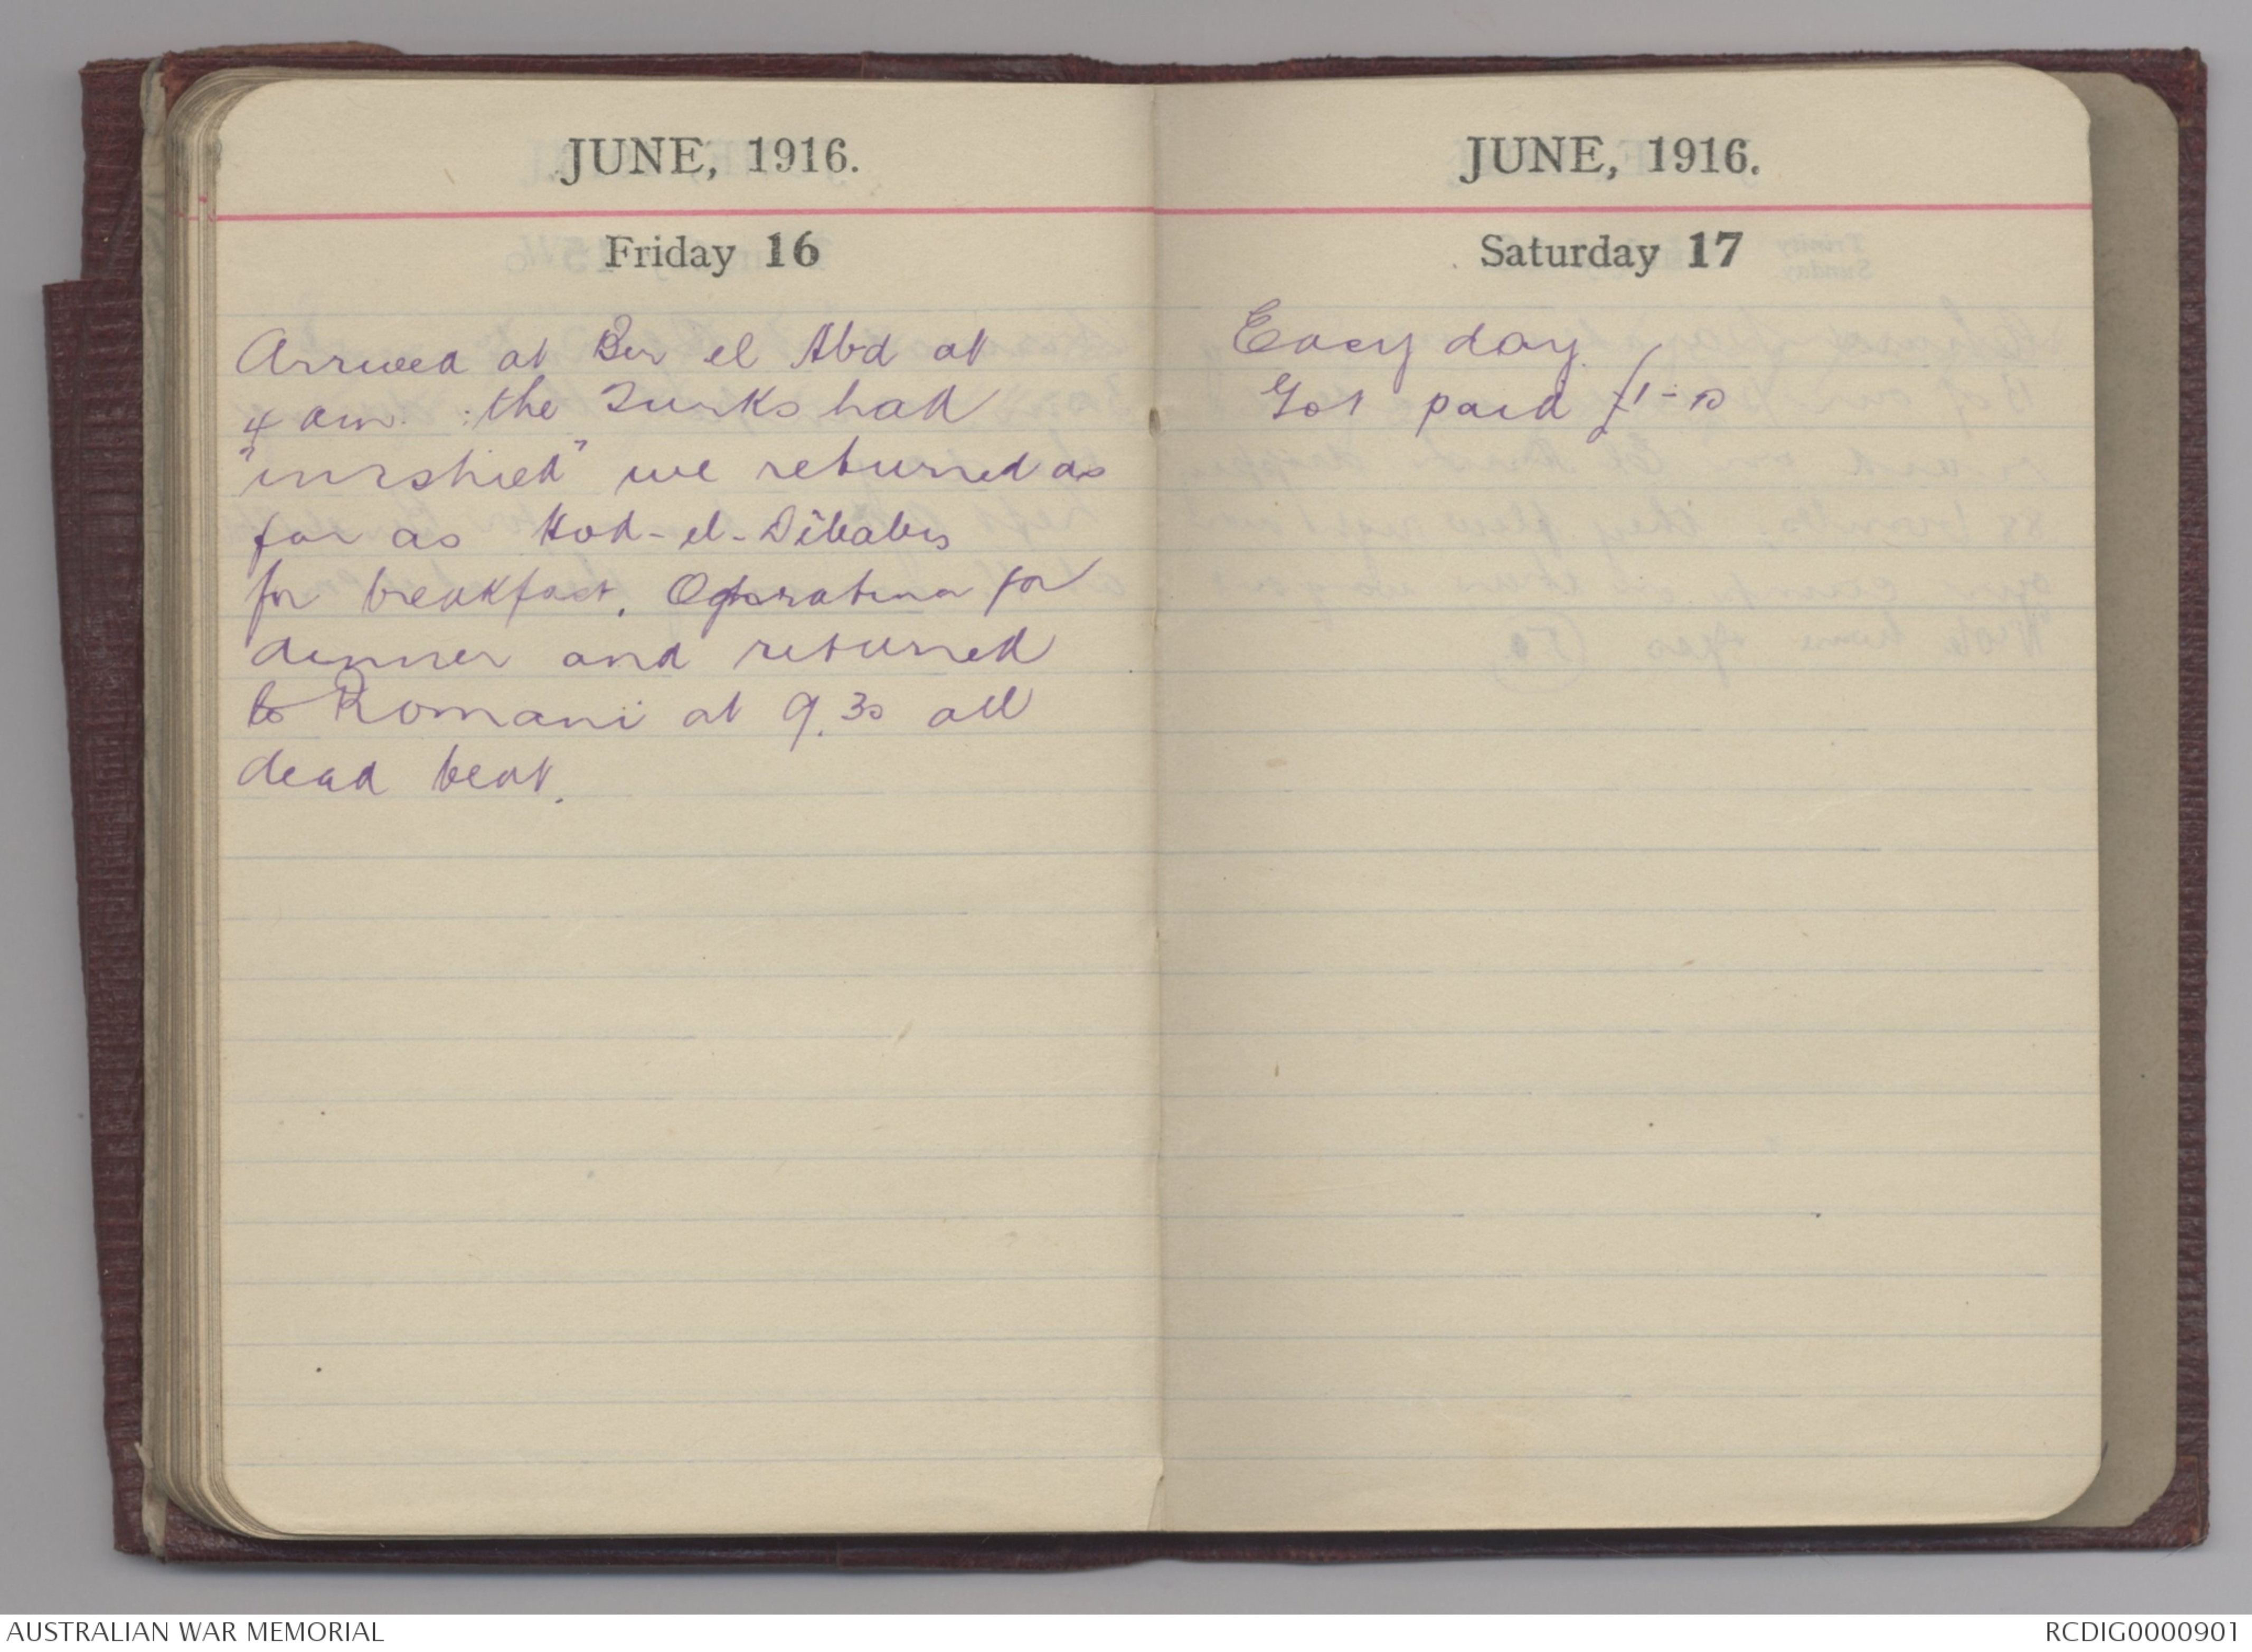 JUNE, 1916.
Friday 16
Arrived at Bir el Abd at
4 am. : the Turks had
"imshied" we returned as
far as Hod-el-Dibabis
for breakfast. Ogratina for
dinner and returned
to Romani at 9.30 all
dead beat.
JUNE, 1916.
Saturday 17
Easy day.
Got paid £1-10
AUSTRALIAN WAR MEMORIAL
RCDIG0000901